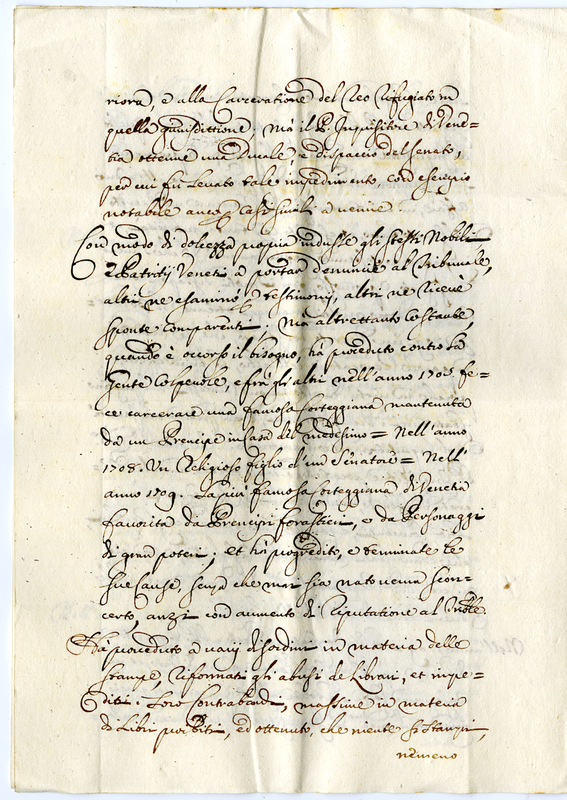 riora, e alla Carceratione del Reo refugiato in
quella giurisdittione; Mà il P. Inquisitore di Vene=
tia ottenne una Ducale, e dispaccio del Senato,
per cui fù levato tale impedimento, con esempio
notabile anco p casi simili à venire.
Con modo di dolcezza propria indusse gli stessi Nobili
e Patritij Veneti à portar denuncie al Tribunale,
altri ne esaminò p testimonij, altri ne ricevè
sponte comparenti; Mà altrettanto Costante,
quando è occorso il bisogno, hà proceduto contro la
gente Colpevole, e frà gli altri nell'anno 1705. fe=
ce carcerare una famosa Corteggiana mantenuta
da un Prencipe in Casa del medesimo = Nell'anno
1708. Un Religioso figlio d'un Senatore = Nell'
anno 1709. La più famosa Corteggiana di Venetia
favorita da Prencipi forastieri, e da Personaggi
di gran poteri; et hà progredito, e terminate le
sue Cause, senza che mai sia nato verun scon=
certo, anzi con aumento di Riputatione al Trible
Hà proceduto a varij disordini in materia delle
stampe, riformati gli abusi de Librari, et impe=
diti i loro Contrabandi, massime in materia
di Libri proibiti, ed ottenuto, che niente si stampi,
nemeno